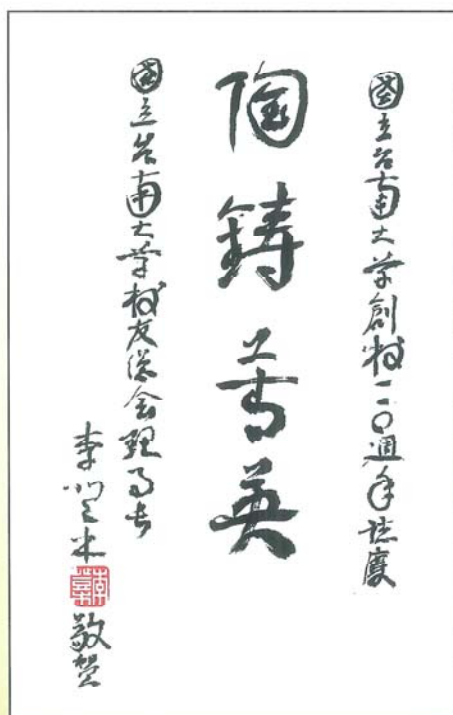 國立台南大学創校一一〇週年誌慶
陶鑄菁英
國立台南大学校友總会理事長
李
敬賀